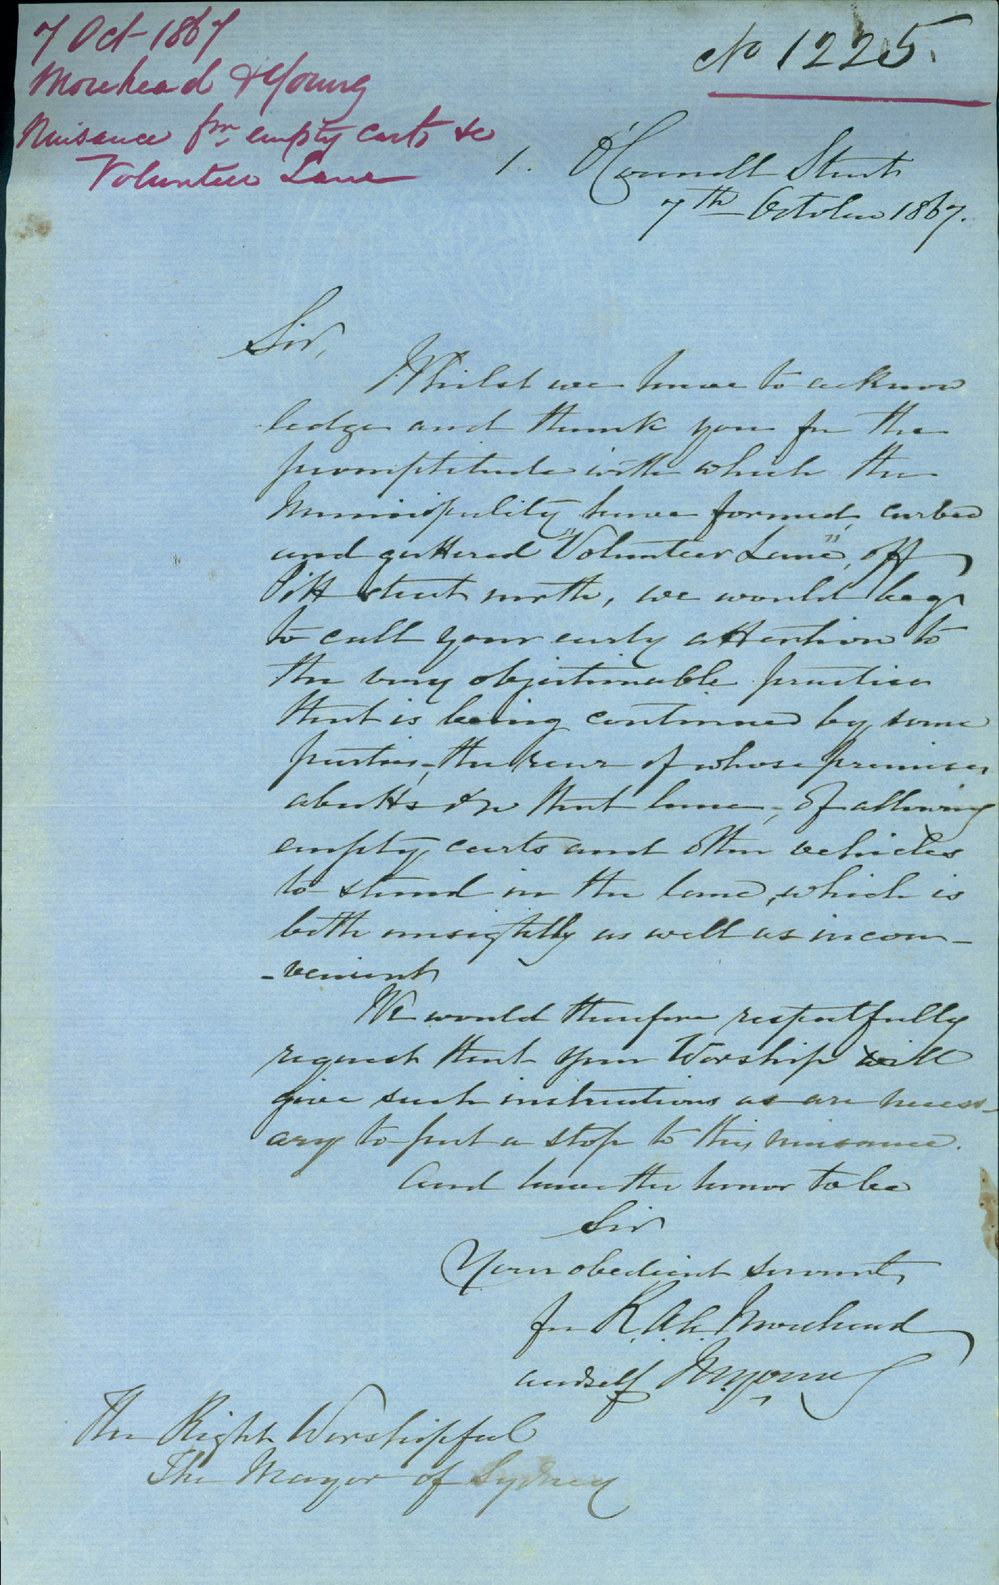 7 Oct 1867
Morehead & Young
Nuisance fm empty carts &c
Volunteer Lane
No 1225.
1. O'Connell Street
7th October 1867.
Sir,
Whilst we have to acknow
ledge and thank you for the
promptitude with which the
Municipality have formed, curbed
and guttered "Volunteer Lane", off
Pitt street north, we would beg
to call your early attention to
the very objectionable practice
that is being continued by some
parties, the rear of whose premises
abutts upon that lane, of allowing
empty carts and other vehicles
to stand in the lane, which is
both unsightly as well as incon-
-venient
We would therefore respectfully
request that your Worship will
give such instructions as are necess-
ary to put a stop to this nuisance.
And have the honor to be
Sir
Your obedient servant,
for R.A.A. Morehead
and self
The Right Worshipful
The Mayor of Sydney